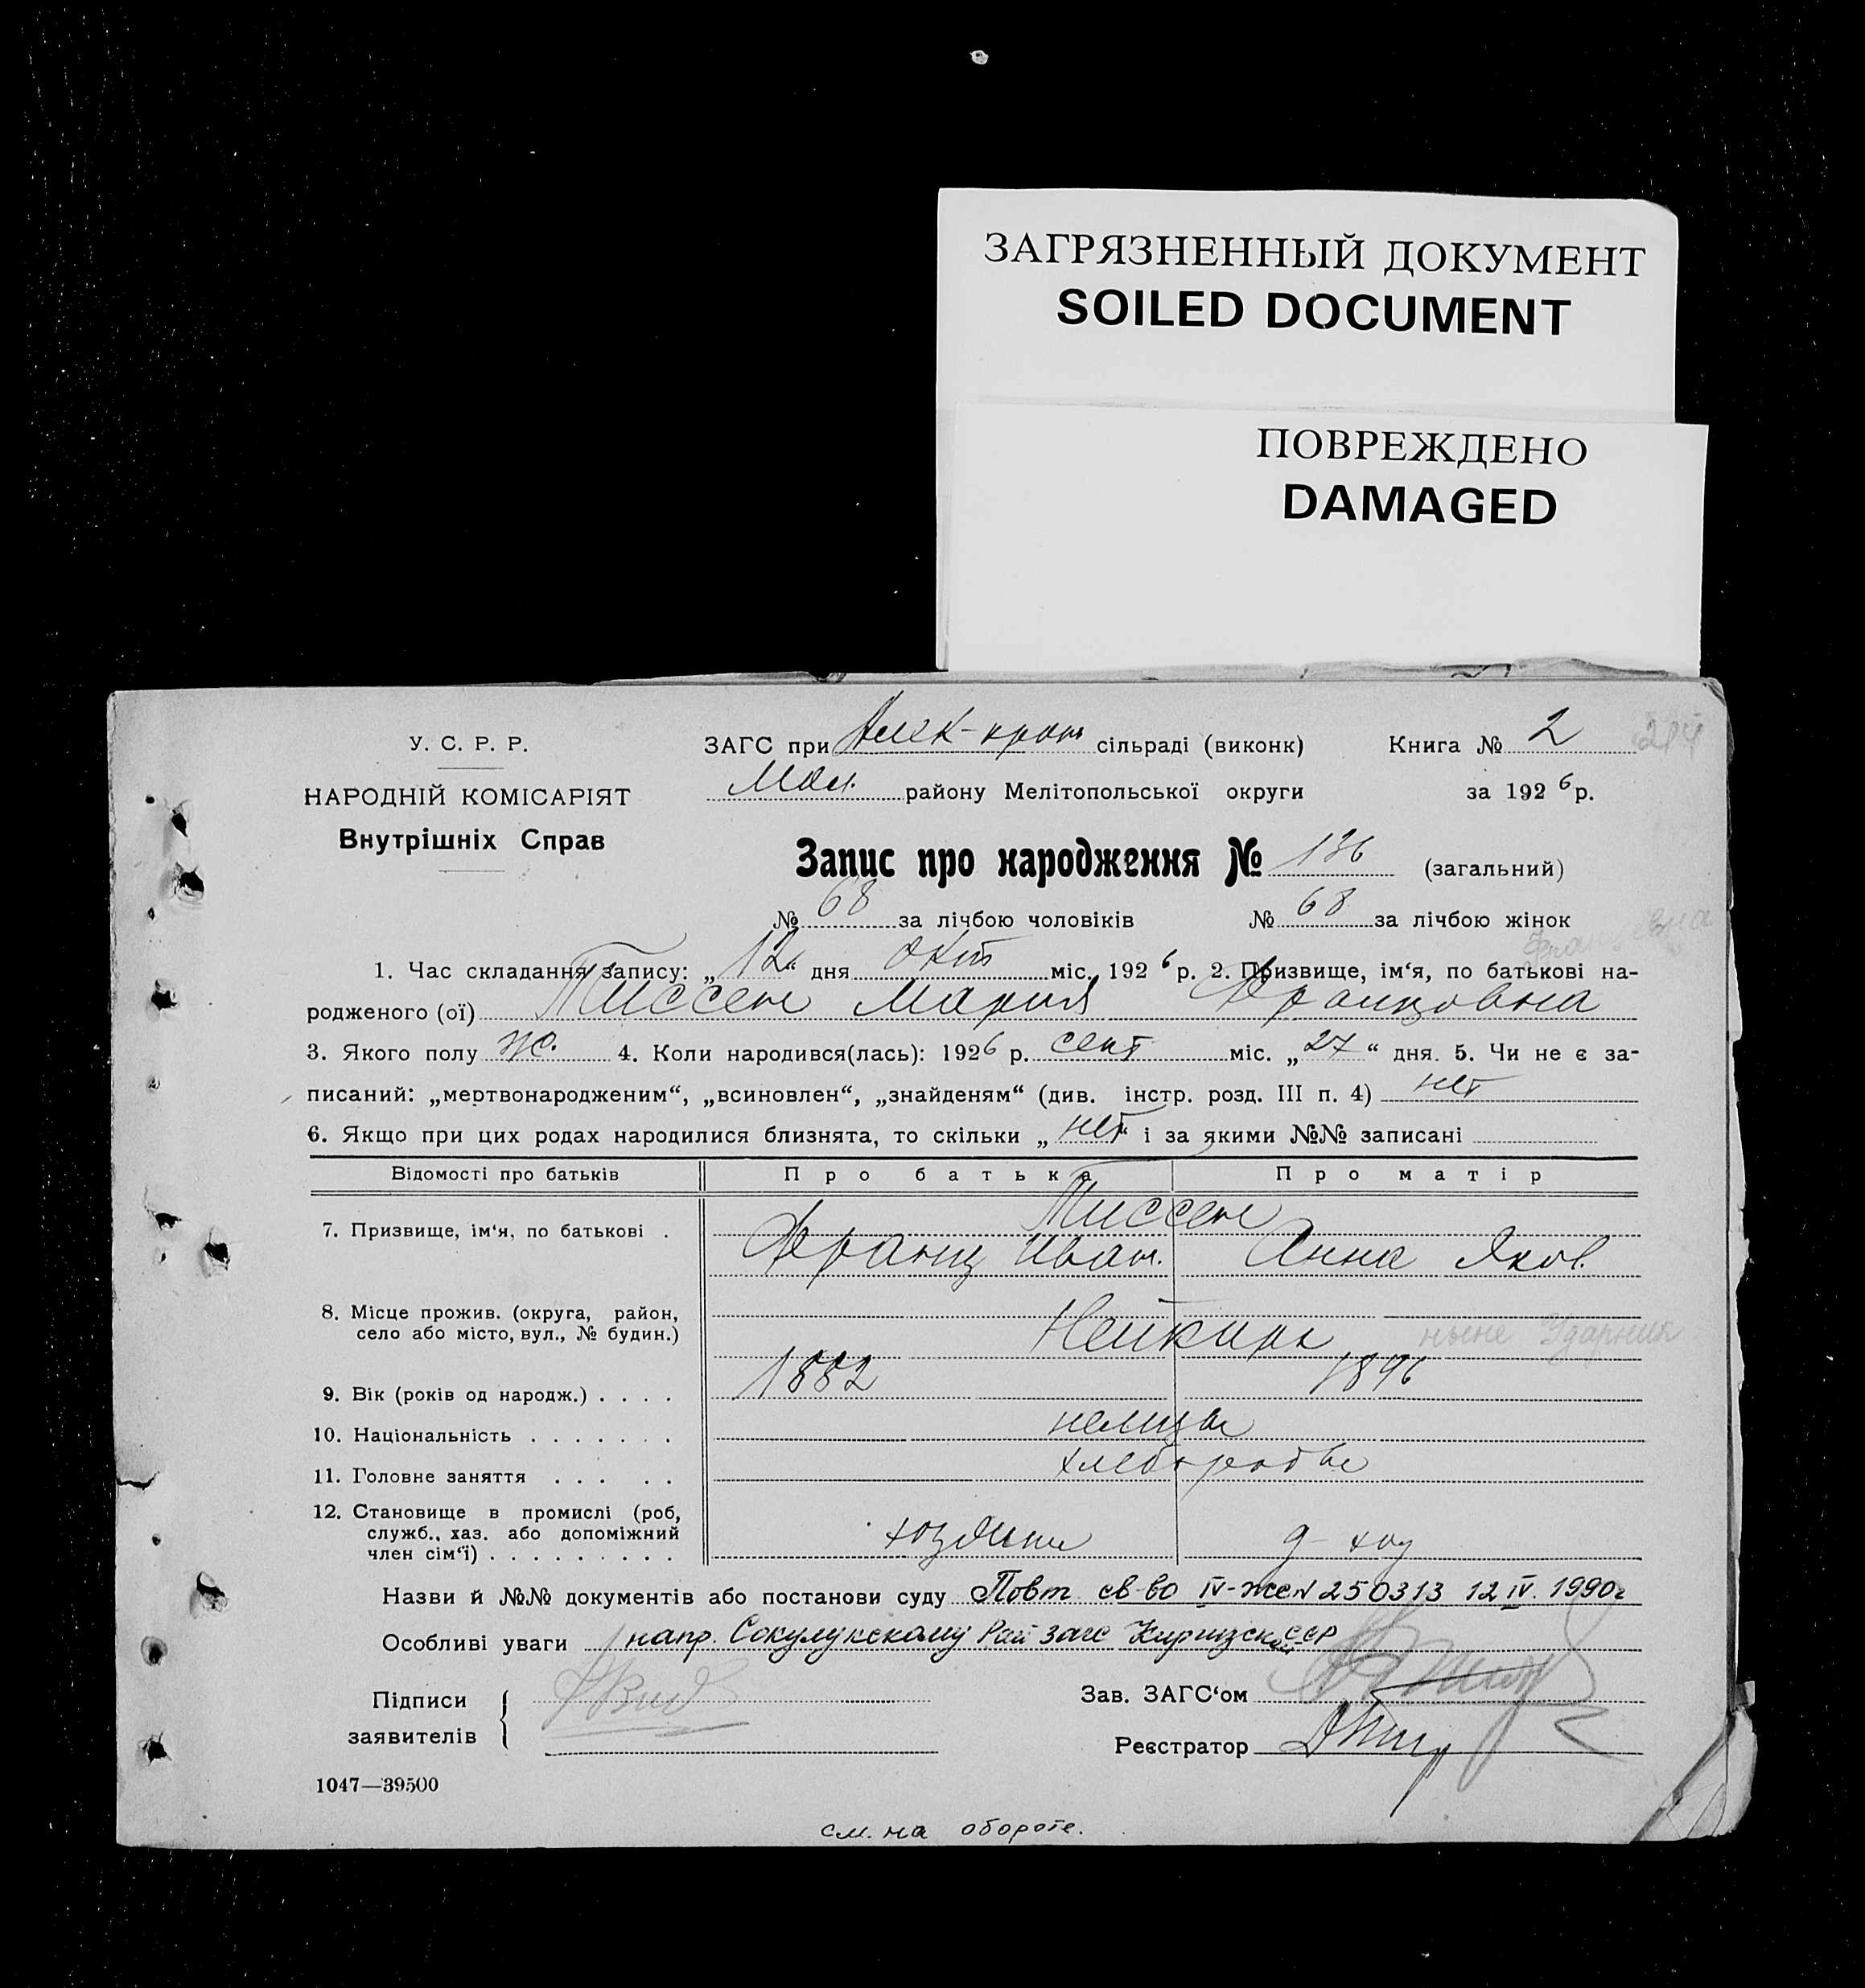 ЗАГРЯЗНЕННЫЙ ДОКУМЕНТ
SOILED DOCUMENT
ПОВРЕЖДЕНО
DAMAGED
У. С. Р. Р.
НАРОДНІЙ КОМІСАРІЯТ
Внутрішніх Справ
ЗАГС при Алек-крон сільраді (виконк) Книга № 2 214
Мол. району Мелітопольської округи за 1926 р.
Запис про народження № 136 (загальний)
№ 68 за лічбою чоловіків № 68 за лічбою жінок
1. Час складання запису: „12“ дня Окт міс. 1926 р. 2. Призвище, ім‘я, по батькові на-
родженого (ої) Тиссен Мария Францовна
3. Якого полу ж. 4. Коли народився(лась): 1926 р. сент міс. „27“ дня. 5. Чи не є за-
писаний: „мертвонародженим“, „всиновлен“, „знайденям“ (див. інстр. розд. III п. 4) нет
6. Якщо при цих родах народилися близнята, то скільки „нет“ і за якими №№ записані
Відомості про батьків Про батька Про матір
Тиссен
7. Призвище, ім‘я, по батькові . Франц Иван. Анна Яков.
8. Місце прожив. (округа, район,
село або місто, вул., № будин.) Нейкирх ныне Ударник
9. Вік (років од народж.) . . . . 1882 1896
10. Національність . . . . . . . немцы
11. Головне заняття . . . . . хлеборобы
12. Становище в промислі (роб,
служб., хаз. або допоміжний
член сім‘ї) . . . . . . . . . хозяин д-хоз
Назви й №№ документів або постанови суду Повт св-во IV-ЖС N 250313 12 IV. 1990г
Особливі уваги напр. Сокулукскому Рай загс Киргизской ССР
Підписи
заявителів
Зав. ЗАГС‘ом
Реєстратор
1047—39500
см. на обороте.